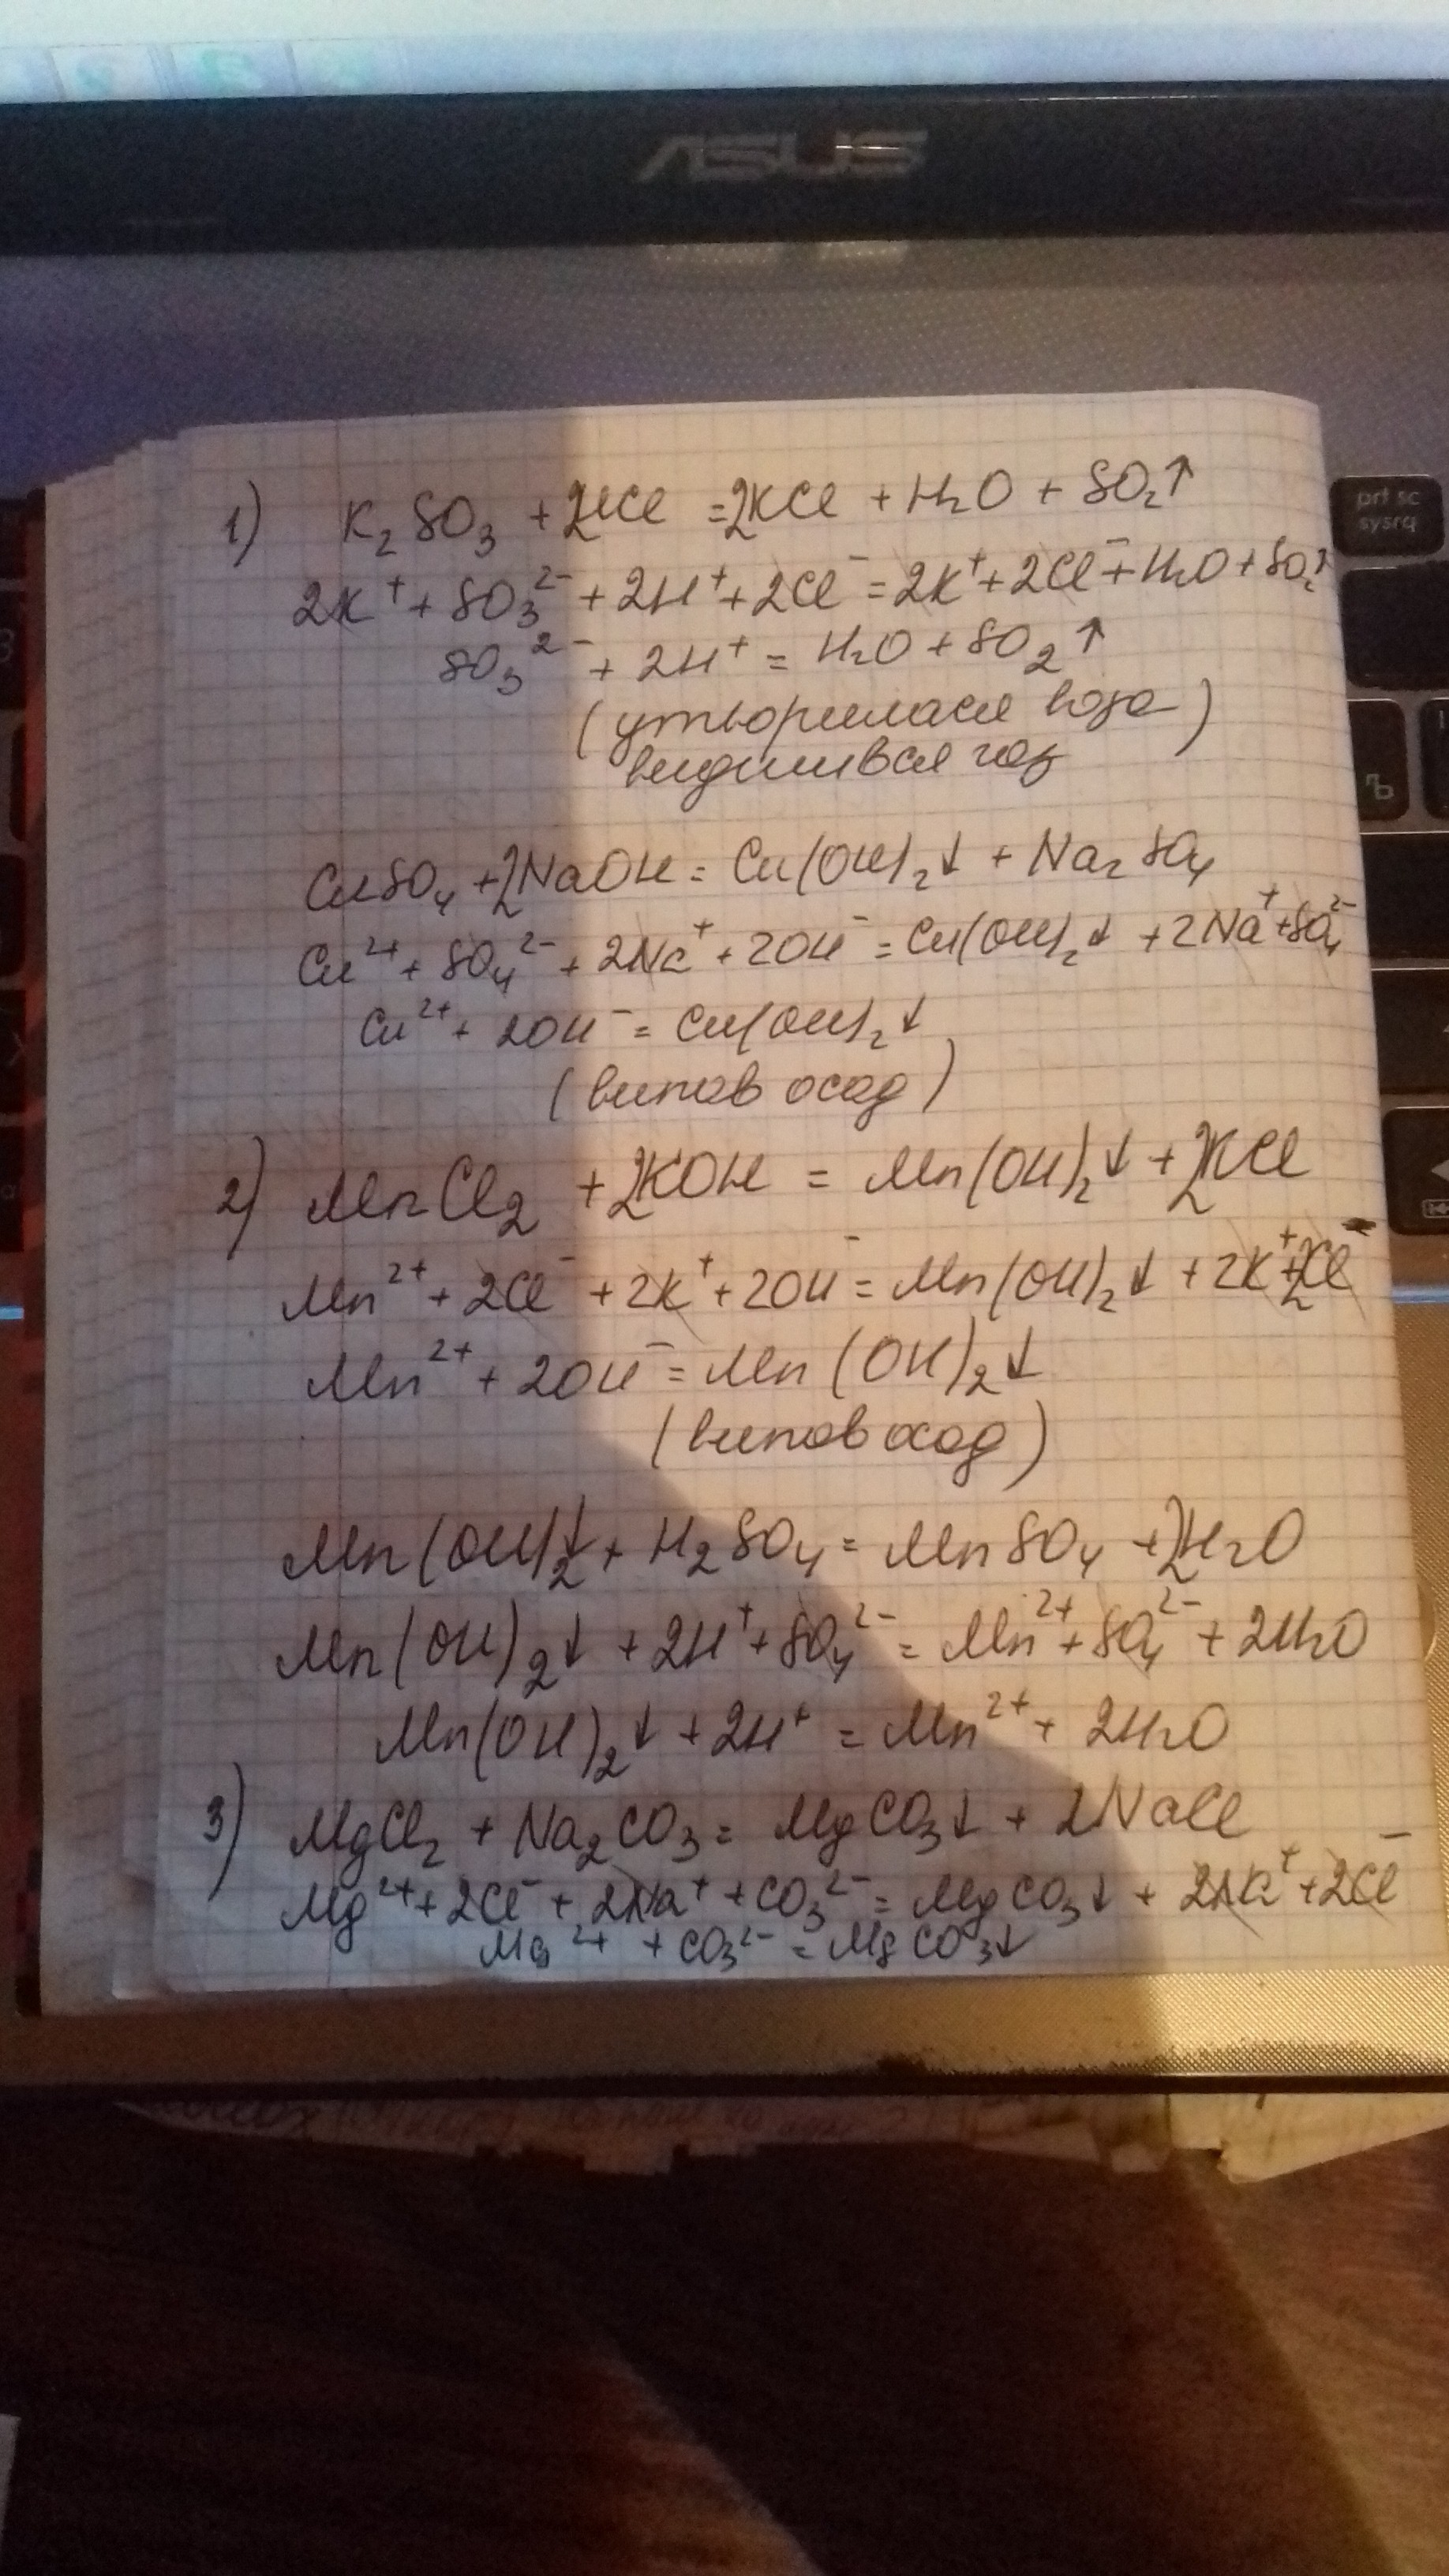 ASUS
prt sc
sysrq
Ъ
1) K₂SO₃ + 2HCl = 2KCl + H₂O + SO₂↑
2K⁺ + SO₃²⁻ + 2H⁺ + 2Cl⁻ = 2K⁺ + 2Cl⁻ + H₂O + SO₂↑
SO₃²⁻ + 2H⁺ = H₂O + SO₂↑
(утворилася вода
видиливсл газ)
CuSO₄ + 2NaOH = Cu(OH)₂↓ + Na₂SO₄
Cu²⁺ + SO₄²⁻ + 2Na⁺ + 2OH⁻ = Cu(OH)₂↓ + 2Na⁺ + SO₄²⁻
Cu²⁺ + 2OH⁻ = Cu(OH)₂↓
(випав осад)
2) MnCl₂ + 2KOH = Mn(OH)₂↓ + 2KCl
Mn²⁺ + 2Cl⁻ + 2K⁺ + 2OH⁻ = Mn(OH)₂↓ + 2K⁺ + 2Cl⁻
Mn²⁺ + 2OH⁻ = Mn(OH)₂↓
(випав осад)
Mn(OH)₂↓ + H₂SO₄ = MnSO₄ + 2H₂O
Mn(OH)₂↓ + 2H⁺ + SO₄²⁻ = Mn²⁺ + SO₄²⁻ + 2H₂O
Mn(OH)₂↓ + 2H⁺ = Mn²⁺ + 2H₂O
3) MgCl₂ + Na₂CO₃ = MgCO₃↓ + 2NaCl
Mg²⁺ + 2Cl⁻ + 2Na⁺ + CO₃²⁻ = MgCO₃↓ + 2Na⁺ + 2Cl⁻
Mg²⁺ + CO₃²⁻ = MgCO₃↓